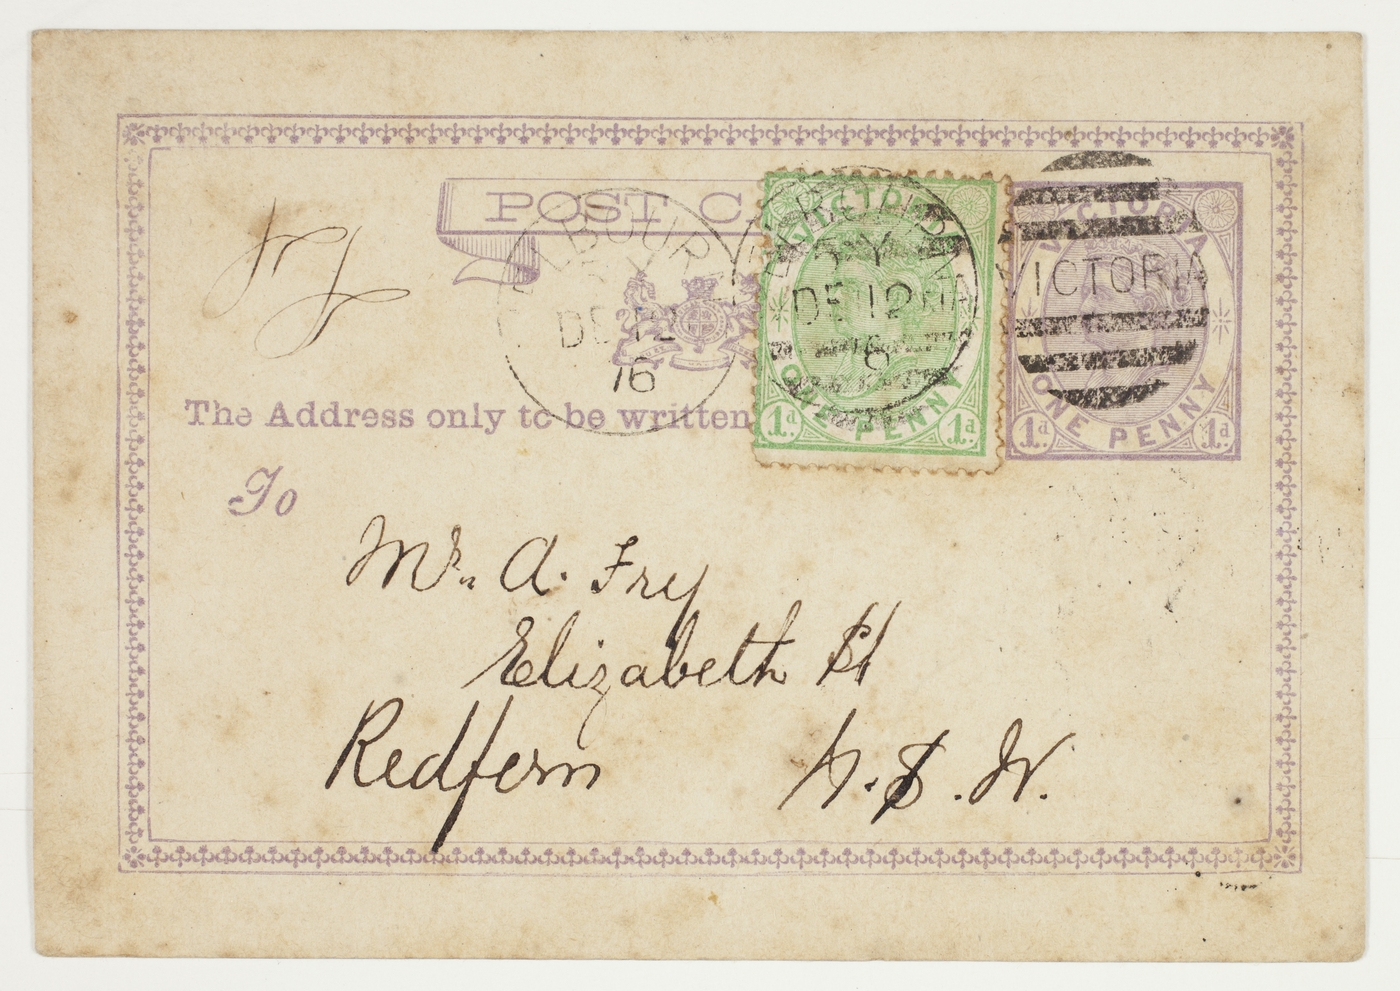 POST C
MELBOURNE
DE 12
76
VICTORIA
DE 12
6
ONE PENNY
1d. 1d.
VICTORIA
VICTORIA
ONE PENNY
1d. 1d.
The Address only to be written
To
Mr. A. Fry
Elizabeth St
Redfern N.S.W.